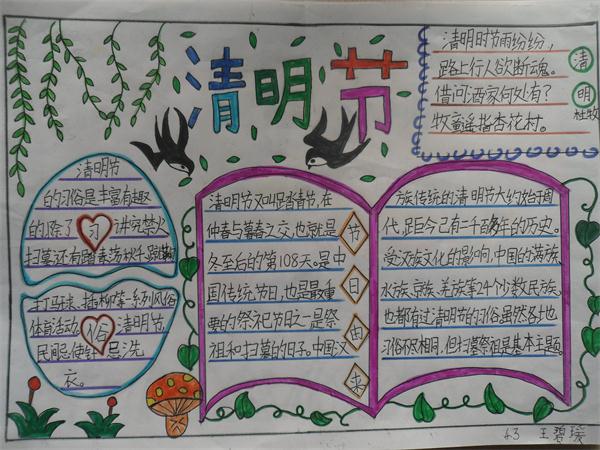 清明节
清明时节雨纷纷,
路上行人欲断魂。
借问酒家何处有?
牧童遥指杏花村。
清
明
杜牧
清明节
的习俗是丰富有趣
的除了 讲究禁火
习
扫墓还有踏青荡秋千蹴鞠
打马球、插柳等一系列风俗
体育活动。清明节,
俗
民间忌使针 忌洗
衣。
清明节又叫踏青节,在
仲春与暮春之交,也就是
冬至后的第108天。是中
国传统节日,也是最重
要的祭祀节日之一是祭
祖和扫墓的日子。中国汉
节
日
由
来
族传统的清明节大约始于周
代,距今已有二千多年的历史。
受汉族文化的影响,中国的满族
水族、京族、羌族等24个少数民族。
也都有过清明节的习俗虽然各地
习俗不尽相同,但扫墓祭祖是基本主题。
王碧瑗